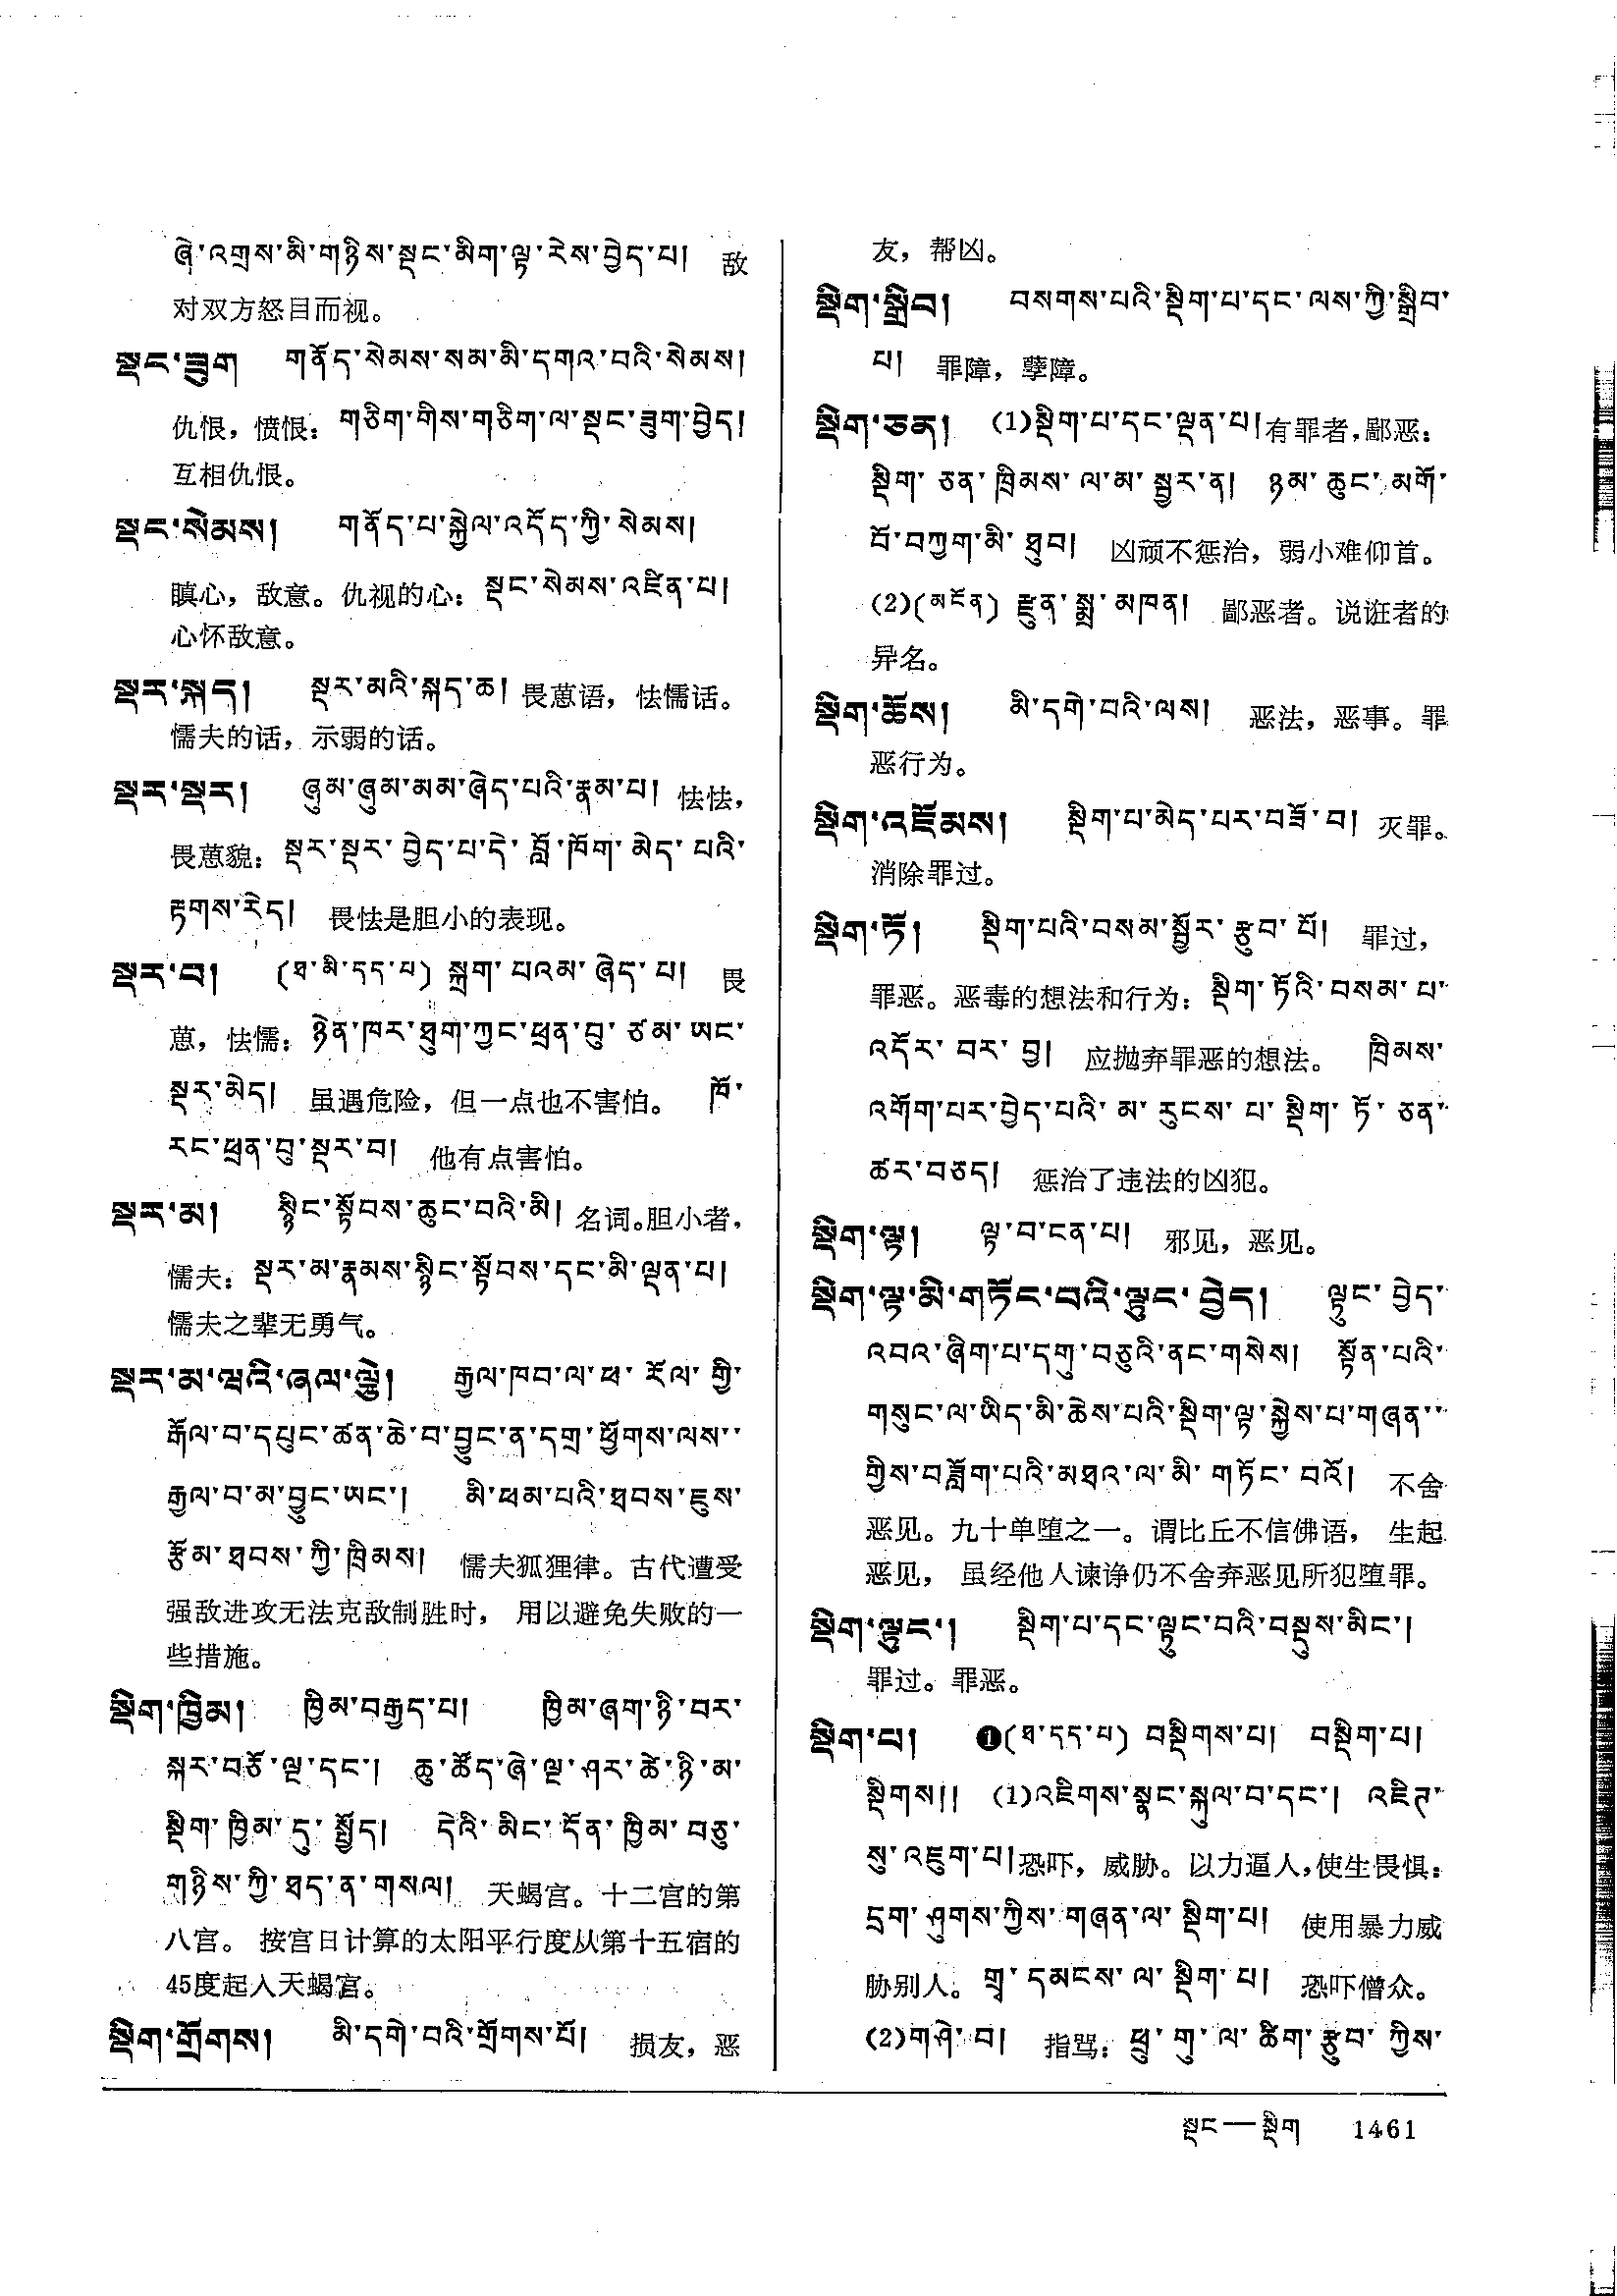 ཞེ་འགྲས་མི་གཉིས་སྡང་མིག་ལྟ་རེས་བྱེད་པ། 敌
对双方怒目而视。
སྡང་ཟུག གནོད་སེམས་སམ་མི་དགའ་བའི་སེམས།
仇恨，愤恨：གཅིག་གིས་གཅིག་ལ་སྡང་ཟུག་བྱེད།
互相仇恨。
སྡང་སེམས། གནོད་པ་སྐྱེལ་འདོད་ཀྱི་སེམས།
瞋心，敌意。仇视的心：སྡང་སེམས་འཛིན་པ།
心怀敌意。
སྡར་སྐད། སྡར་མའི་སྐད་ཆ། 畏葸语，怯懦话。
懦夫的话，示弱的话。
སྡར་སྡར། ཞུམ་ཞུམ་མམ་ཞེད་པའི་རྣམ་པ། 怯怯，
畏葸貌：སྡར་སྡར་བྱེད་པ་དེ་བློ་ཁོག་མེད་པའི་
རྟགས་རེད། 畏怯是胆小的表现。
སྡར་བ། (ཐ་མི་དད་པ) སྐྲག་པའམ་ཞེད་པ། 畏
葸，怯懦：ཉེན་ཁར་ཐུག་ཀྱང་ཕྲན་བུ་ཙམ་ཡང་
སྡར་མེད། 虽遇危险，但一点也不害怕。 ཁོ་
རང་ཕྲན་བུ་སྡར་བ། 他有点害怕。
སྡར་མ། སྙིང་སྟོབས་ཆུང་བའི་མི། 名词。胆小者，
懦夫：སྡར་མ་རྣམས་སྙིང་སྟོབས་དང་མི་ལྡན་པ།
懦夫之辈无勇气。
སྡར་མ་ཝའི་ཞལ་ལྕེ། རྒྱལ་ཁབ་ལ་ཕ་རོལ་གྱི་
རྒོལ་བ་དཔུང་ཚན་ཆེ་བ་བྱུང་ན་དགྲ་ཕྱོགས་ལས་
རྒྱལ་བ་མ་བྱུང་ཡང་། མི་ཕམ་པའི་ཐབས་ཇུས་
རྩོམ་ཐབས་ཀྱི་ཁྲིམས། 懦夫狐狸律。古代遭受
强敌进攻无法克敌制胜时， 用以避免失败的一
些措施。
སྡིག་ཁྱིམ། ཁྱིམ་བརྒྱད་པ། ཁྱིམ་ཞག་ཉི་བར་
སྐར་བཅོ་ལྔ་དང་། ཆུ་ཚོད་ཞེ་ལྔ་ཤར་ཚེ་ཉི་མ་
སྡིག་ཁྱིམ་དུ་སྤྱོད། དེའི་མིང་དོན་ཁྱིམ་བཅུ་
གཉིས་ཀྱི་ཐད་ན་གསལ། 天蝎宫。十二宫的第
八宫。 按宫日计算的太阳平行度从第十五宿的
45度起入天蝎宫。
སྡིག་གྲོགས། མི་དགེ་བའི་གྲོགས་པོ། 损友，恶
友，帮凶。
སྡིག་སྒྲིབ། བསགས་པའི་སྡིག་པ་དང་ལས་ཀྱི་སྒྲིབ་
པ། 罪障，孽障。
སྡིག་ཅན། (1)སྡིག་པ་དང་ལྡན་པ།有罪者，鄙恶：
སྡིག་ཅན་ཁྲིམས་ལ་མ་སྦྱར་ན། ཉམ་ཆུང་མགོ་
བོ་བཀྱག་མི་ཐུབ། 凶顽不惩治，弱小难仰首。
(2)(མངོན) རྫུན་སྨྲ་མཁན། 鄙恶者。说诳者的
异名。
སྡིག་ཆོས། མི་དགེ་བའི་ལས། 恶法，恶事。罪
恶行为。
སྡིག་འཇོམས། སྡིག་པ་མེད་པར་བཟོ་བ། 灭罪。
消除罪过。
སྡིག་ཏོ། སྡིག་པའི་བསམ་སྦྱོར་རྩུབ་པོ། 罪过，
罪恶。恶毒的想法和行为：སྡིག་ཏོའི་བསམ་པ་
འདོར་བར་བྱ། 应抛弃罪恶的想法。 ཁྲིམས་
འགོག་པར་བྱེད་པའི་མ་རུངས་པ་སྡིག་ཏོ་ཅན་
ཚར་བཅད། 惩治了违法的凶犯。
སྡིག་ལྟ། ལྟ་བ་ངན་པ། 邪见，恶见。
སྡིག་ལྟ་མི་གཏོང་བའི་ལྟུང་བྱེད། ལྟུང་བྱེད་
འབའ་ཞིག་པ་དགུ་བཅུའི་ནང་གསེས། སྟོན་པའི་
གསུང་ལ་ཡིད་མི་ཆེས་པའི་སྡིག་ལྟ་སྐྱེས་པ་གཞན་
གྱིས་བཟློག་པའི་མཐའ་ལ་མི་གཏོང་བའོ། 不舍
恶见。九十单堕之一。谓比丘不信佛语， 生起
恶见， 虽经他人谏诤仍不舍弃恶见所犯堕罪。
སྡིག་ལྟུང་། སྡིག་པ་དང་ལྟུང་བའི་བསྡུས་མིང་།
罪过。罪恶。
སྡིག་པ། ❶(ཐ་དད་པ) བསྡིགས་པ། བསྡིག་པ།
སྡིགས།། (1)འཇིགས་སྣང་སྐུལ་བ་དང་། འཇིཊ་
སུ་འཇུག་པ།恐吓，威胁。以力逼人，使生畏惧：
དྲག་ཤུགས་ཀྱིས་གཞན་ལ་སྡིག་པ། 使用暴力威
胁别人。གྲྭ་དམངས་ལ་སྡིག་པ། 恐吓僧众。
(2)གཤེ་བ། 指骂：ཕྲུ་གུ་ལ་ཚིག་རྩུབ་ཀྱིས་
སྡང—སྡིག 1461